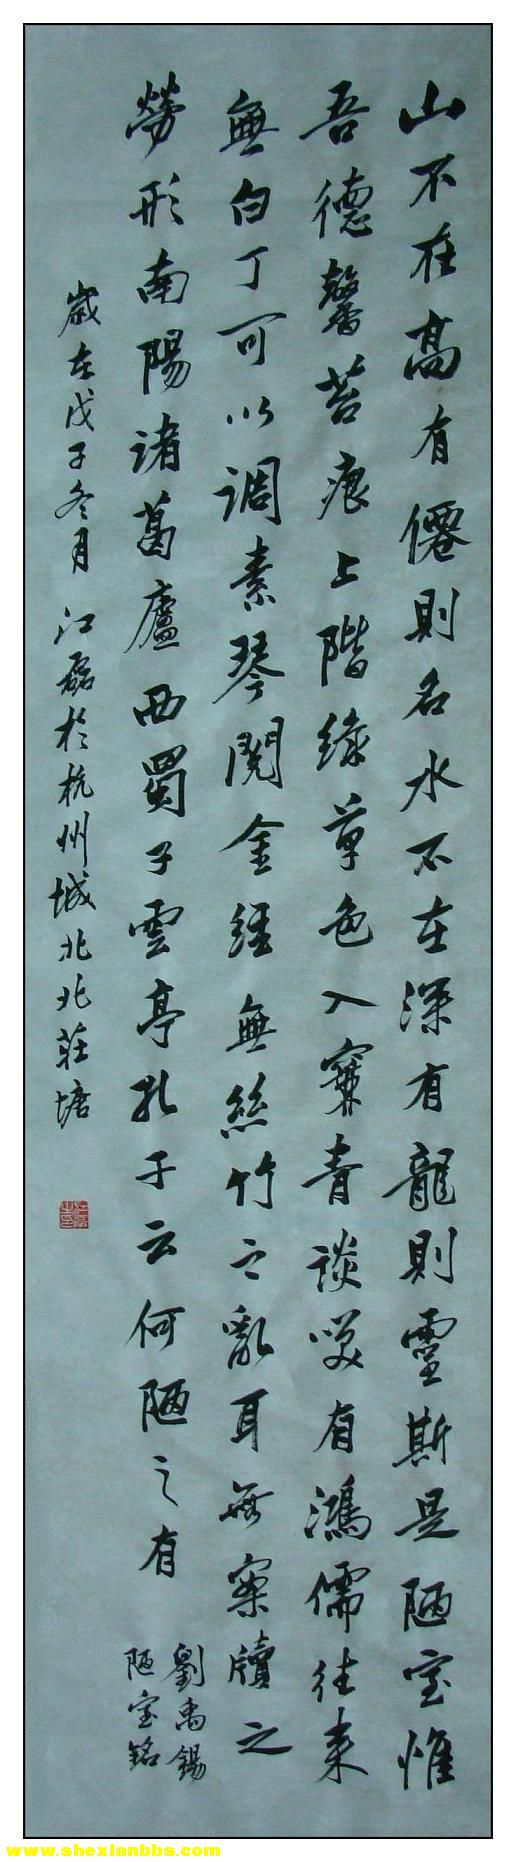 山不在高有僊則名水不在深有龍則靈斯是陋室惟
吾德馨苔痕上階緑草色入簾青談笑有鴻儒往来
無白丁可以調素琴閱金經無絲竹之亂耳無案牘之
勞形南陽諸葛廬西蜀子雲亭孔子云何陋之有
劉禹錫
陋室銘
歲在戊子冬月江磊於杭州城北北莊塘
www.shexianbbs.com